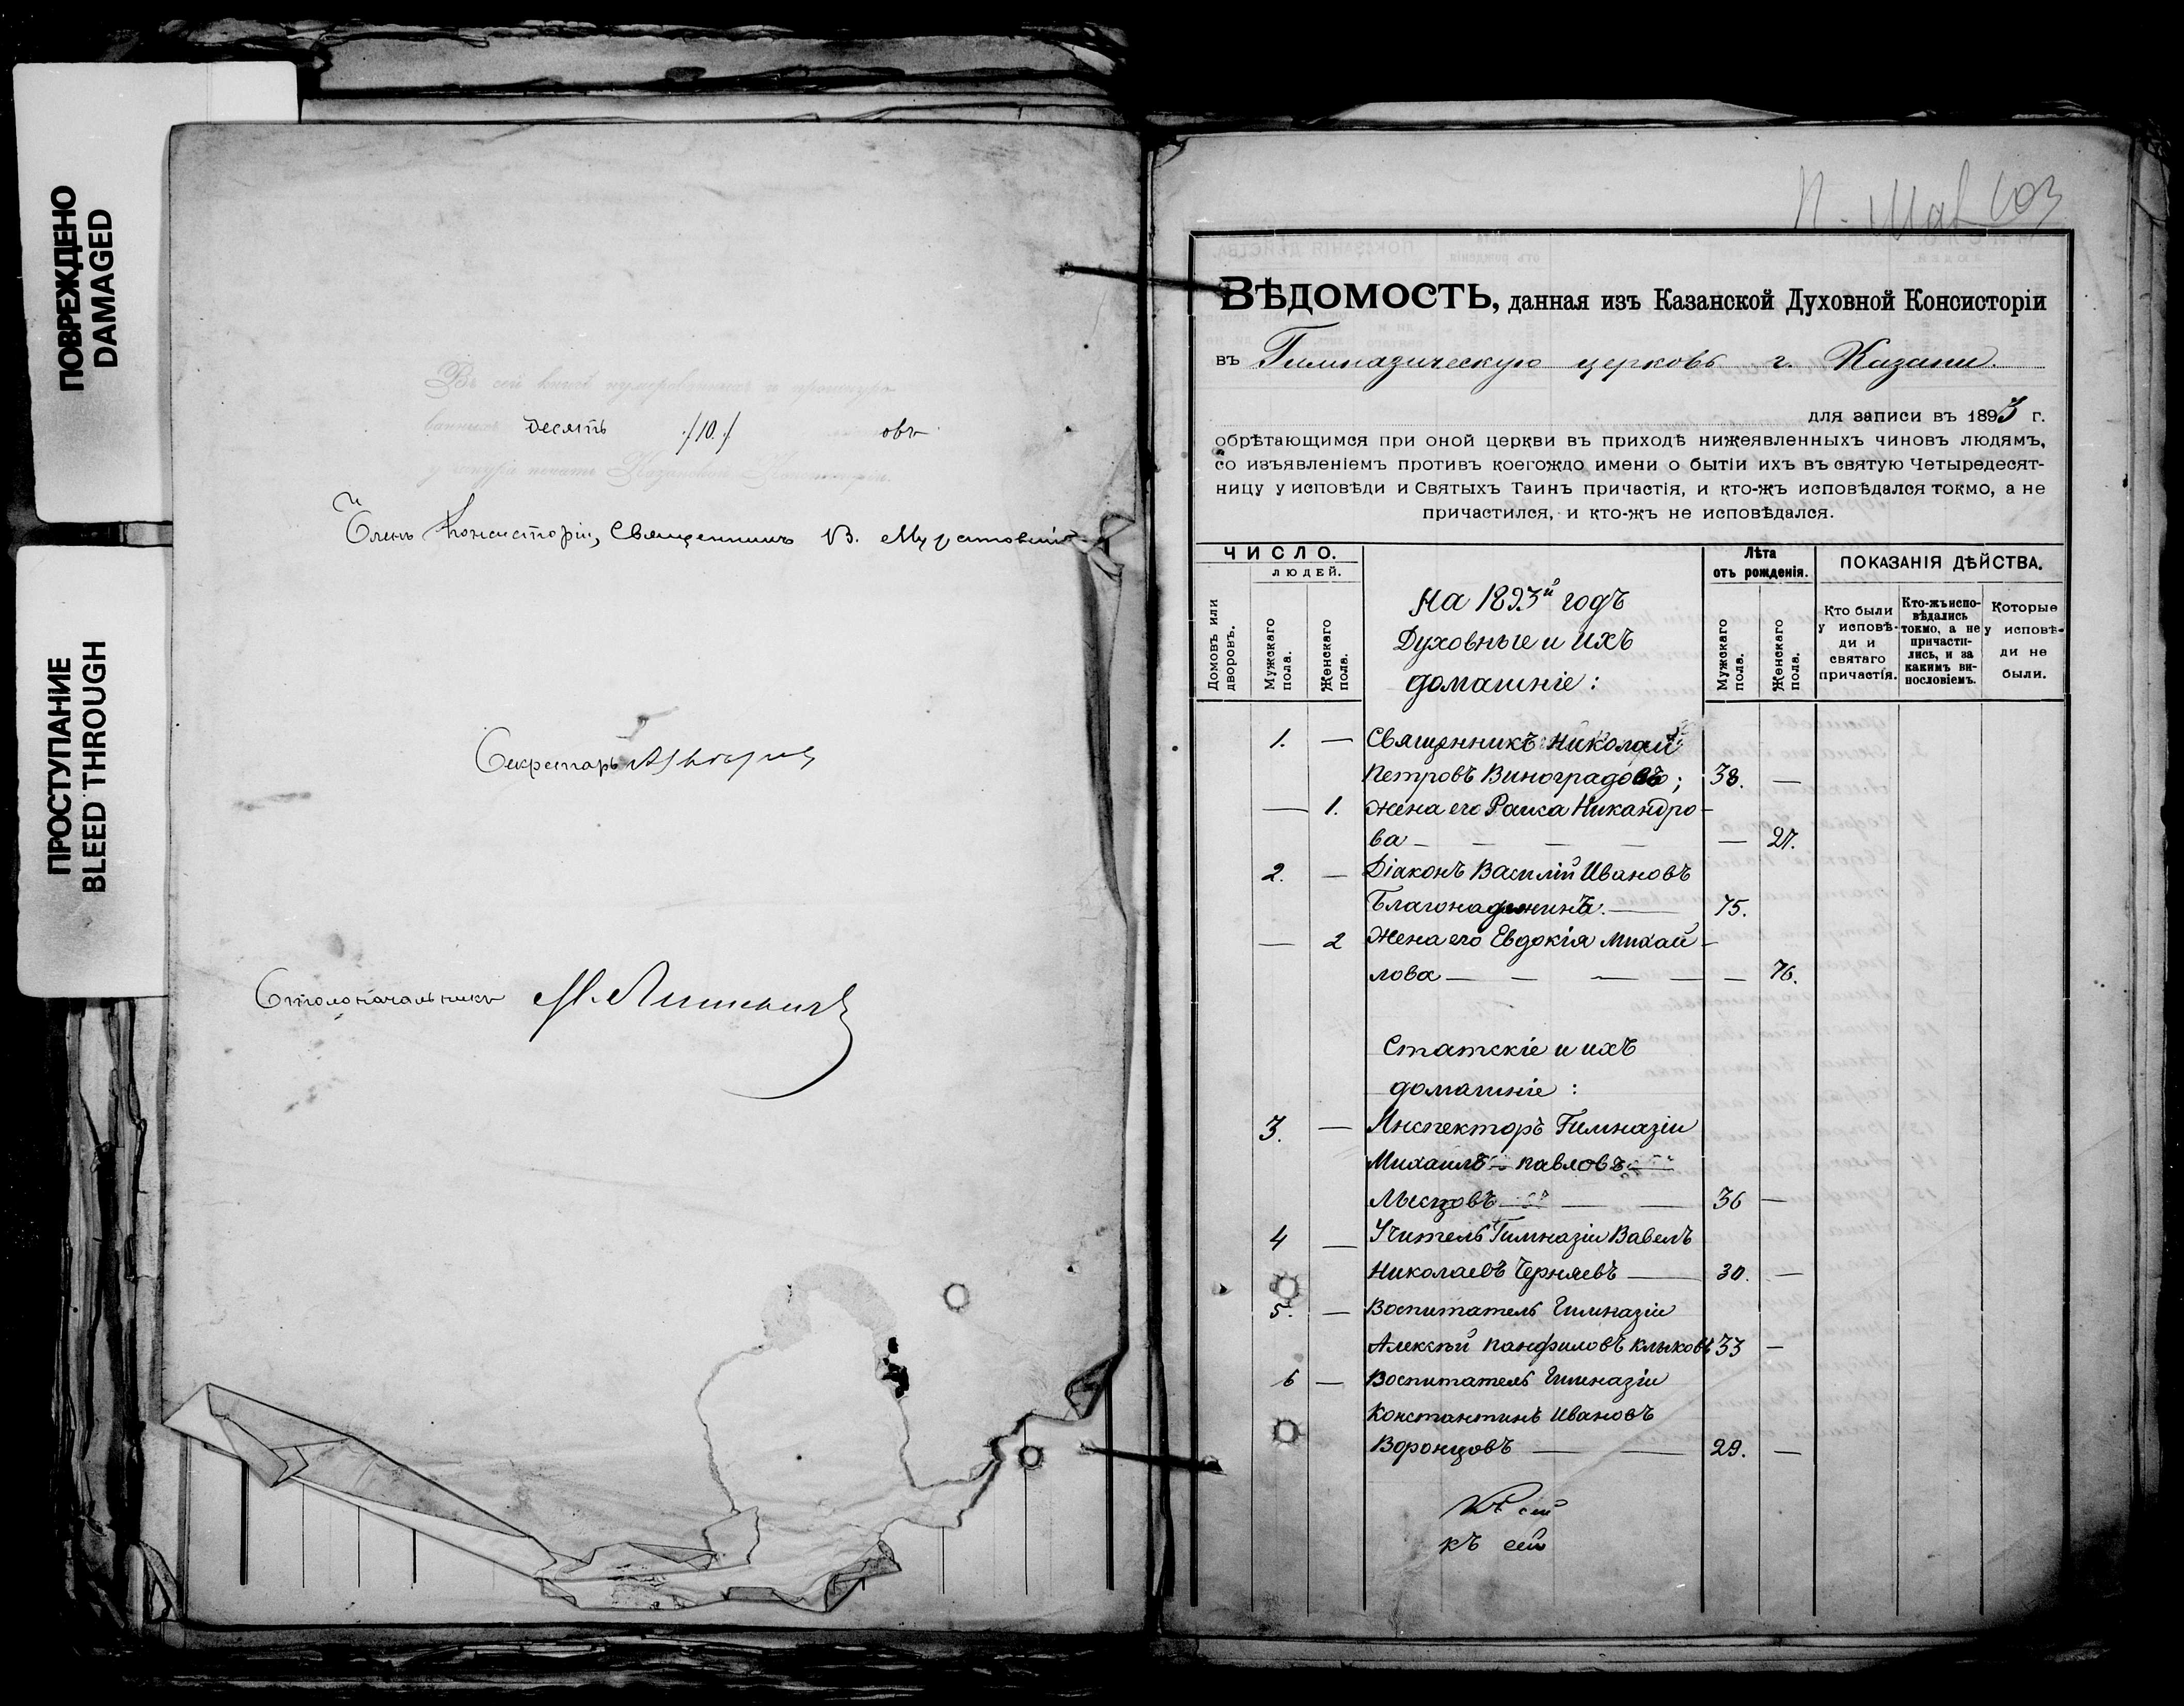 ПОВРЕЖДЕНО
DAMAGED
ПРОСТУПАНИЕ
BLEED THROUGH
Въ сей книгѣ нумерованныхъ и прошнуро-
ванныхъ десять /10./ овъ
у шнура печать Казанской Консисторіи.
Членъ Консисторіи, Священникъ В.
Секретарь
Столоначальникъ М.
ВѢДОМОСТЬ, данная изъ Казанской Духовной Консисторіи
въ Гимназическую церковь г. Казани.
для записи въ 1893 г.
обрѣтающимся при оной церкви въ приходѣ нижеявленныхъ чиновъ людямъ,
со изъявленіемъ противъ коегождо имени о бытіи ихъ въ святую Четыредесят-
ницу у исповѣди и Святыхъ Таинъ причастія, и кто-жъ исповѣдался токмо, а не
причастился, и кто-жъ не исповѣдался.
ЧИСЛО.
людей.
Домовъ или дворовъ.
Мужскаго пола.
Женскаго пола.
На 1893й годъ
Духовные и ихъ
домашніе:
Лѣта
отъ рожденія.
Мужскаго пола.
Женскаго пола.
ПОКАЗАНІЯ ДѢЙСТВА.
Кто были у исповѣ-ди и святаго причастія.
Кто-жъ испо-вѣдались токмо, а не причасти-лись, и за какимъ ви-нословіемъ.
Которые у исповѣ-ди не были.
1. — Священникъ Николай
Петровъ Виноградовъ; 38. —
— 1. Жена его Раиса Никандро-
ва — — — — — 27.
2. — Діаконъ Василій Ивановъ
Благонадежинъ. — 75.
— 2 Жена его Евдокія Михай-
лова — — — — — 76.
Статскіе и ихъ
домашніе:
3. — Инспекторъ Гимназіи
Михаилъ — Павловъ —
Лысцовъ — — — 36 —
4 — Учитель Гимназіи Павелъ
Николаевъ Черняевъ — 30. —
5. — Воспитатель Гимназіи
Алексѣй Панфиловъ Клыковъ 33 —
6 — Воспитатель Гимназіи
Константинъ Ивановъ
Воронцовъ — — 29. —
Къ сей
къ сей